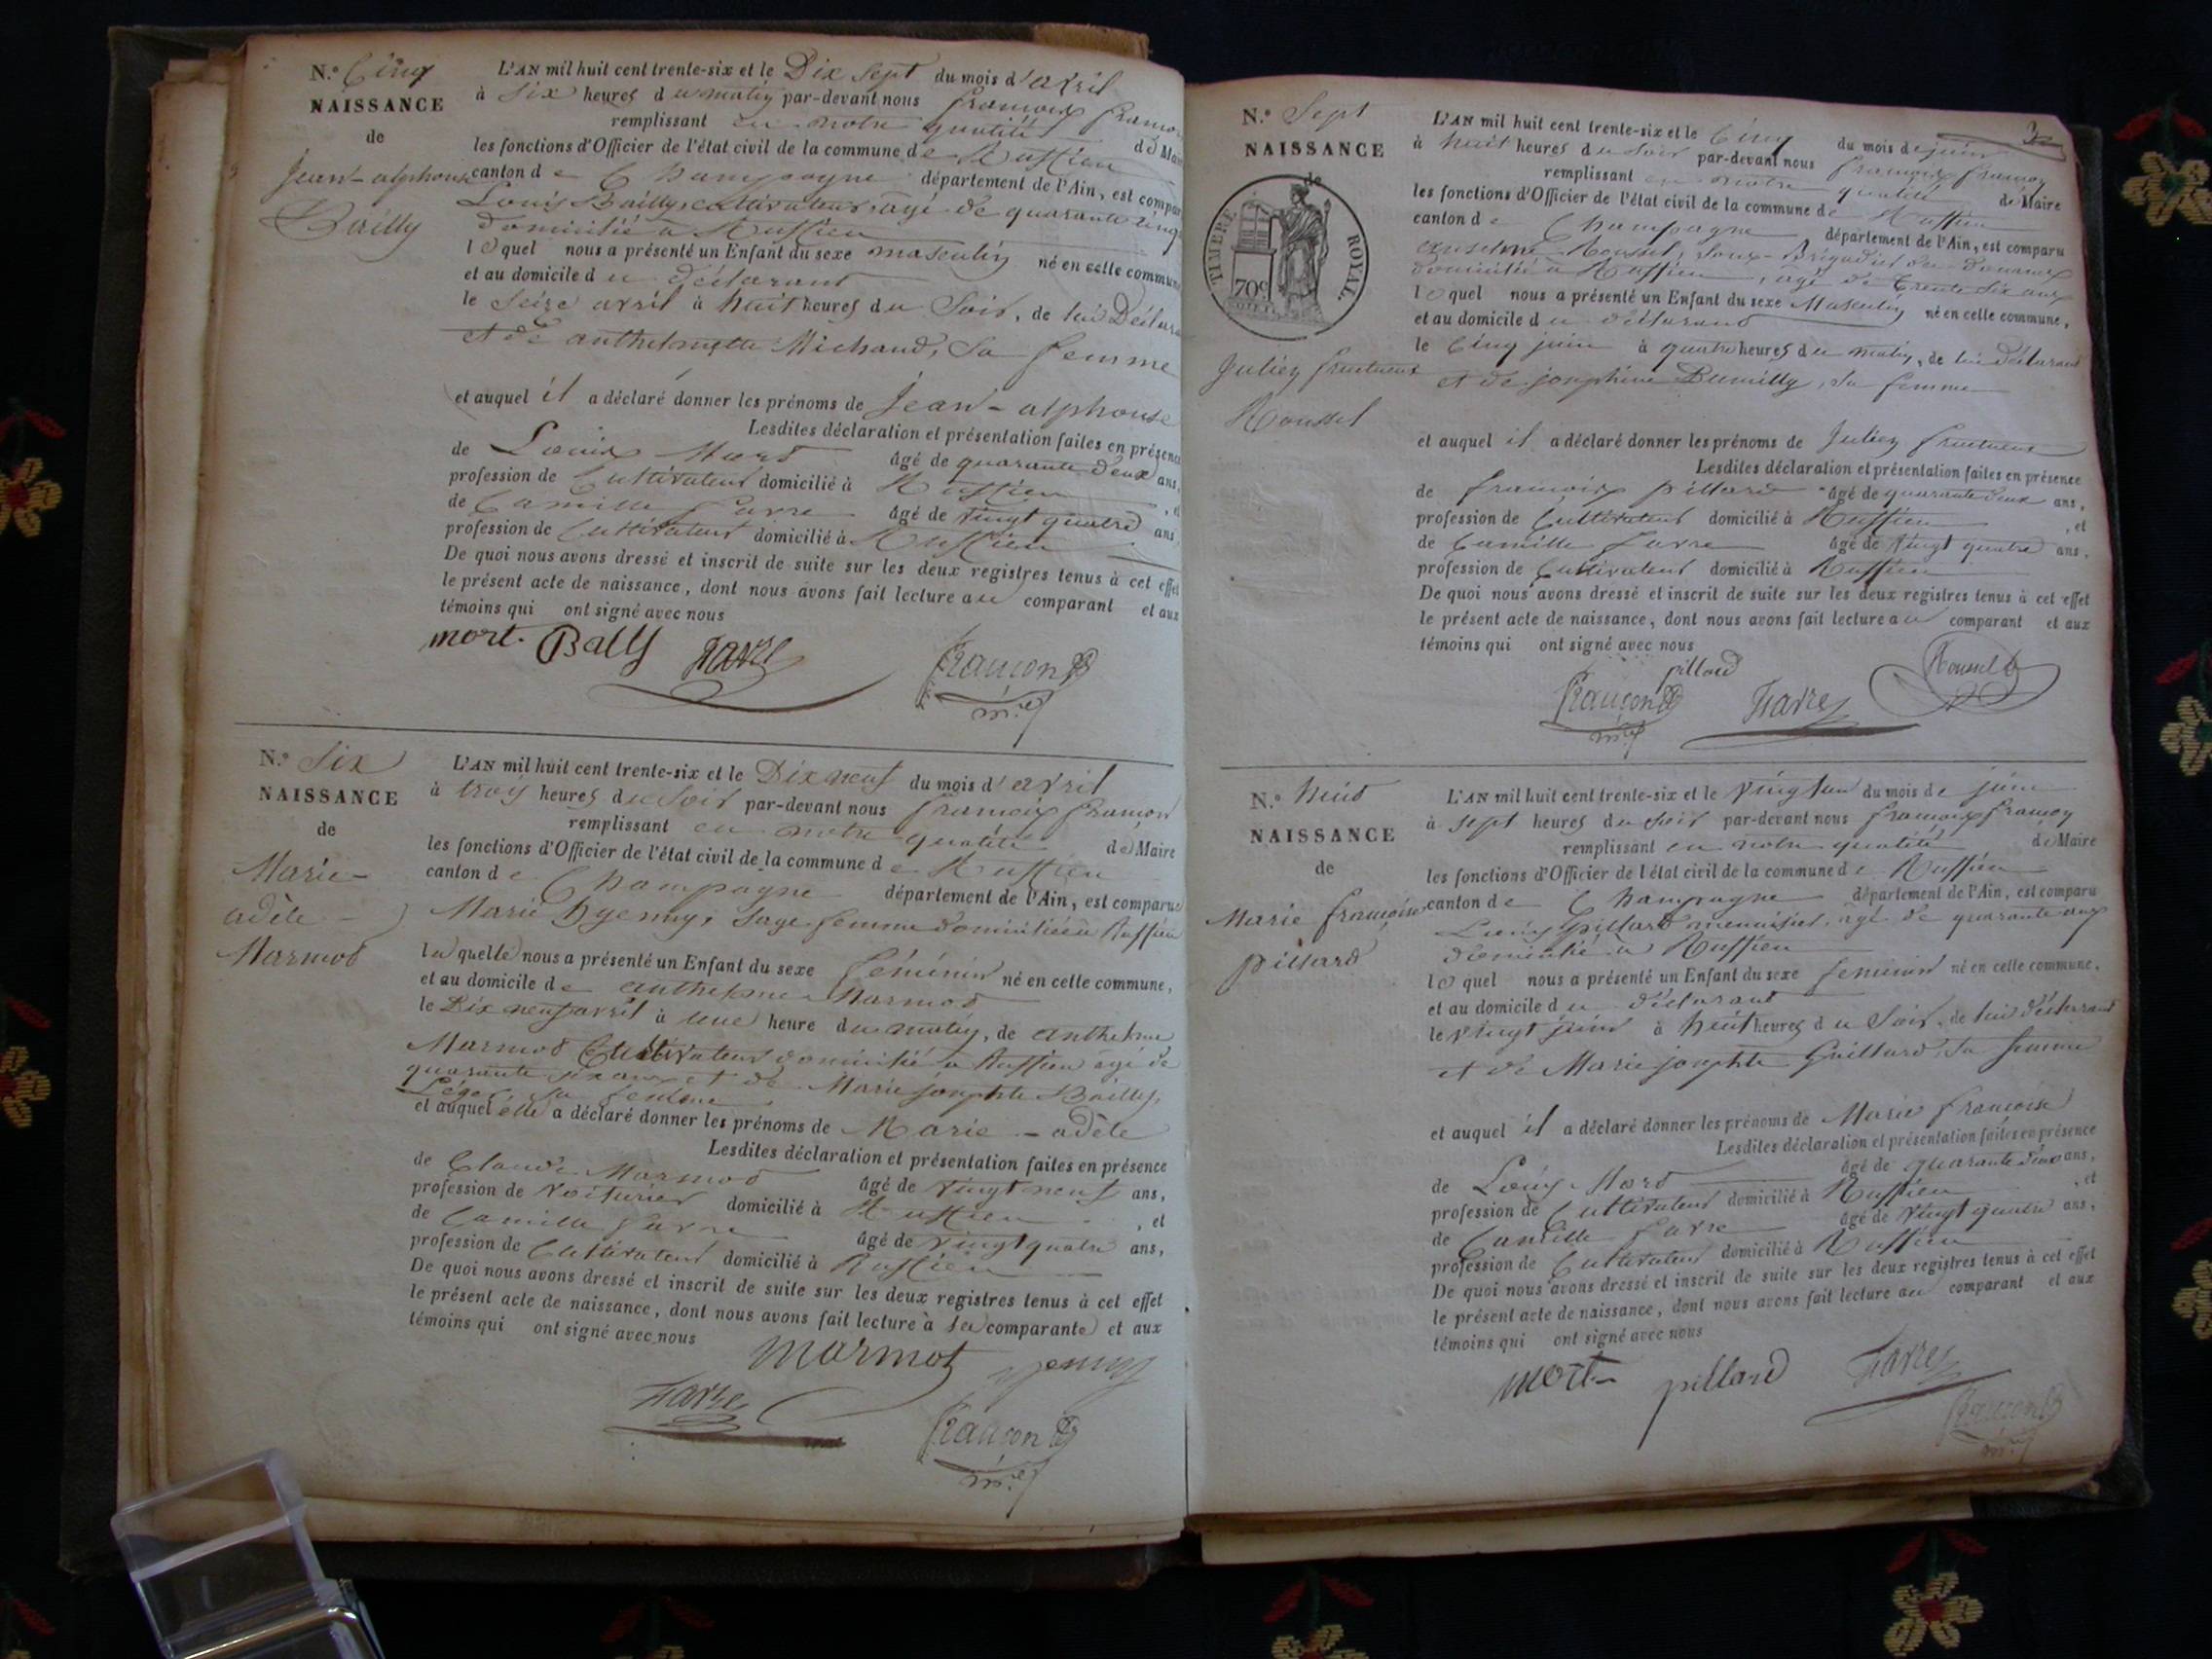 N.° Cinq
NAISSANCE
de
Jean-alphonse
Bailly
L'AN mil huit cent trente-six et le Dix Sept du mois d'avril
à Six heures du matin par-devant nous françois françon
remplissant en notre qualité de Mai
les fonctions d'Officier de l'état civil de la commune de Ruffieu
canton de Champagne département de l'Ain, est compar
Louis Bailly, cultivateur, agé de quarante cinq
domicilié à Ruffieu
lequel nous a présenté un Enfant du sexe masculin né en cette commun
et au domicile du déclarant
le Seize avril à huit heures du Soir, de lui Déclara
et de anthelmette Michaud, Sa femme
et auquel il a déclaré donner les prénoms de Jean-alphonse
Lesdites déclaration et présentation faites en présenc
de Louis Mort âgé de quarante deux ans,
profession de Cultivateur domicilié à Ruffieu, et
de Camille favre âgé de vingt quatre ans
profession de Cultivateur domicilié à Ruffieu
De quoi nous avons dressé et inscrit de suite sur les deux registres tenus à cet effet
le présent acte de naissance, dont nous avons fait lecture au comparant et aux
témoins qui ont signé avec nous
mort. Bally favre
françon
m.re
N.° Six
NAISSANCE
de
Marie-
adèle
Marmod
L'AN mil huit cent trente-six et le Dix neuf du mois d'avril
à trois heures du Soir par-devant nous françois françon
remplissant en notre qualité de Maire
les fonctions d'Officier de l'état civil de la commune de Ruffieu
canton de Champagne département de l'Ain, est comparue
Marie hyenny, Sage femme domiciliée à Ruffieu
laquelle nous a présenté un Enfant du sexe féminin né en cette commune,
et au domicile de anthelme Marmod
le Dix neuf avril à une heure du matin, de anthelme
Marmod Cultivateur domicilié à Ruffieu âgé de
quarante six ans et de Marie Josephte Bailly,
Sa femme
et auquel elle a déclaré donner les prénoms de Marie-adèle
Lesdites déclaration et présentation faites en présence
de Claude Marmod âgé de vingt neuf ans,
profession de voiturier domicilié à Ruffieu, et
de Camille favre âgé de vingt quatre ans,
profession de Cultivateur domicilié à Ruffieu
De quoi nous avons dressé et inscrit de suite sur les deux registres tenus à cet effet
le présent acte de naissance, dont nous avons fait lecture à la comparante et aux
témoins qui ont signé avec nous
Marmot
favre
françon
m.re
N.° Sept
NAISSANCE
de
TIMBRE ROYAL.
70c
Julien fructueux
Roussel
L'AN mil huit cent trente-six et le Cinq du mois de juin
à huit heures du Soir par-devant nous françois françon
remplissant en notre qualité de Maire
les fonctions d'Officier de l'état civil de la commune de Ruffieu
canton de Champagne département de l'Ain, est comparu
anselme Roussel, Sous-Brigadier des douanes
domicilié à Ruffieu, âgé de trente six ans
lequel nous a présenté un Enfant du sexe Masculin né en cette commune,
et au domicile du déclarant
le Cinq juin à quatre heures du matin, de lui déclarant
et de josephine Dumilly, sa femme
et auquel il a déclaré donner les prénoms de Julien fructueux
Lesdites déclaration et présentation faites en présence
de françois pillard âgé de quarante deux ans,
profession de Cultivateur domicilié à Ruffieu, et
de Camille favre âgé de vingt quatre ans.
profession de Cultivateur domicilié à Ruffieu
De quoi nous avons dressé et inscrit de suite sur les deux registres tenus à cet effet
le présent acte de naissance, dont nous avons fait lecture au comparant et aux
témoins qui ont signé avec nous
pillard Roussel
françon favre
m.re
N.° huit
NAISSANCE
de
Marie françoise
pillard
L'AN mil huit cent trente-six et le vingt un du mois de juin
à sept heures du soir par-devant nous françois françon
remplissant en notre qualité de Maire
les fonctions d'Officier de l'état civil de la commune de Ruffieu
canton de Champagne département de l'Ain, est comparu
Louis pillard menuisier, agé de quarante ans
domicilié à Ruffieu
lequel nous a présenté un Enfant du sexe feminin né en cette commune.
et au domicile du déclarant
le vingt juin à huit heures du Soir, de lui déclarant
et de Marie josephte Guillard, sa femme
et auquel il a déclaré donner les prénoms de Marie françoise
Lesdites déclaration et présentation faites en présence
de Louis Mort âgé de quarante deux ans,
profession de Cultivateur domicilié à Ruffieu, et
de Camille favre âgé de vingt quatre ans,
profession de Cultivateur domicilié à Ruffieu
De quoi nous avons dressé et inscrit de suite sur les deux registres tenus à cet effet
le présent acte de naissance, dont nous avons fait lecture au comparant et aux
témoins qui ont signé avec nous
mort pillard favre
françon
m.re